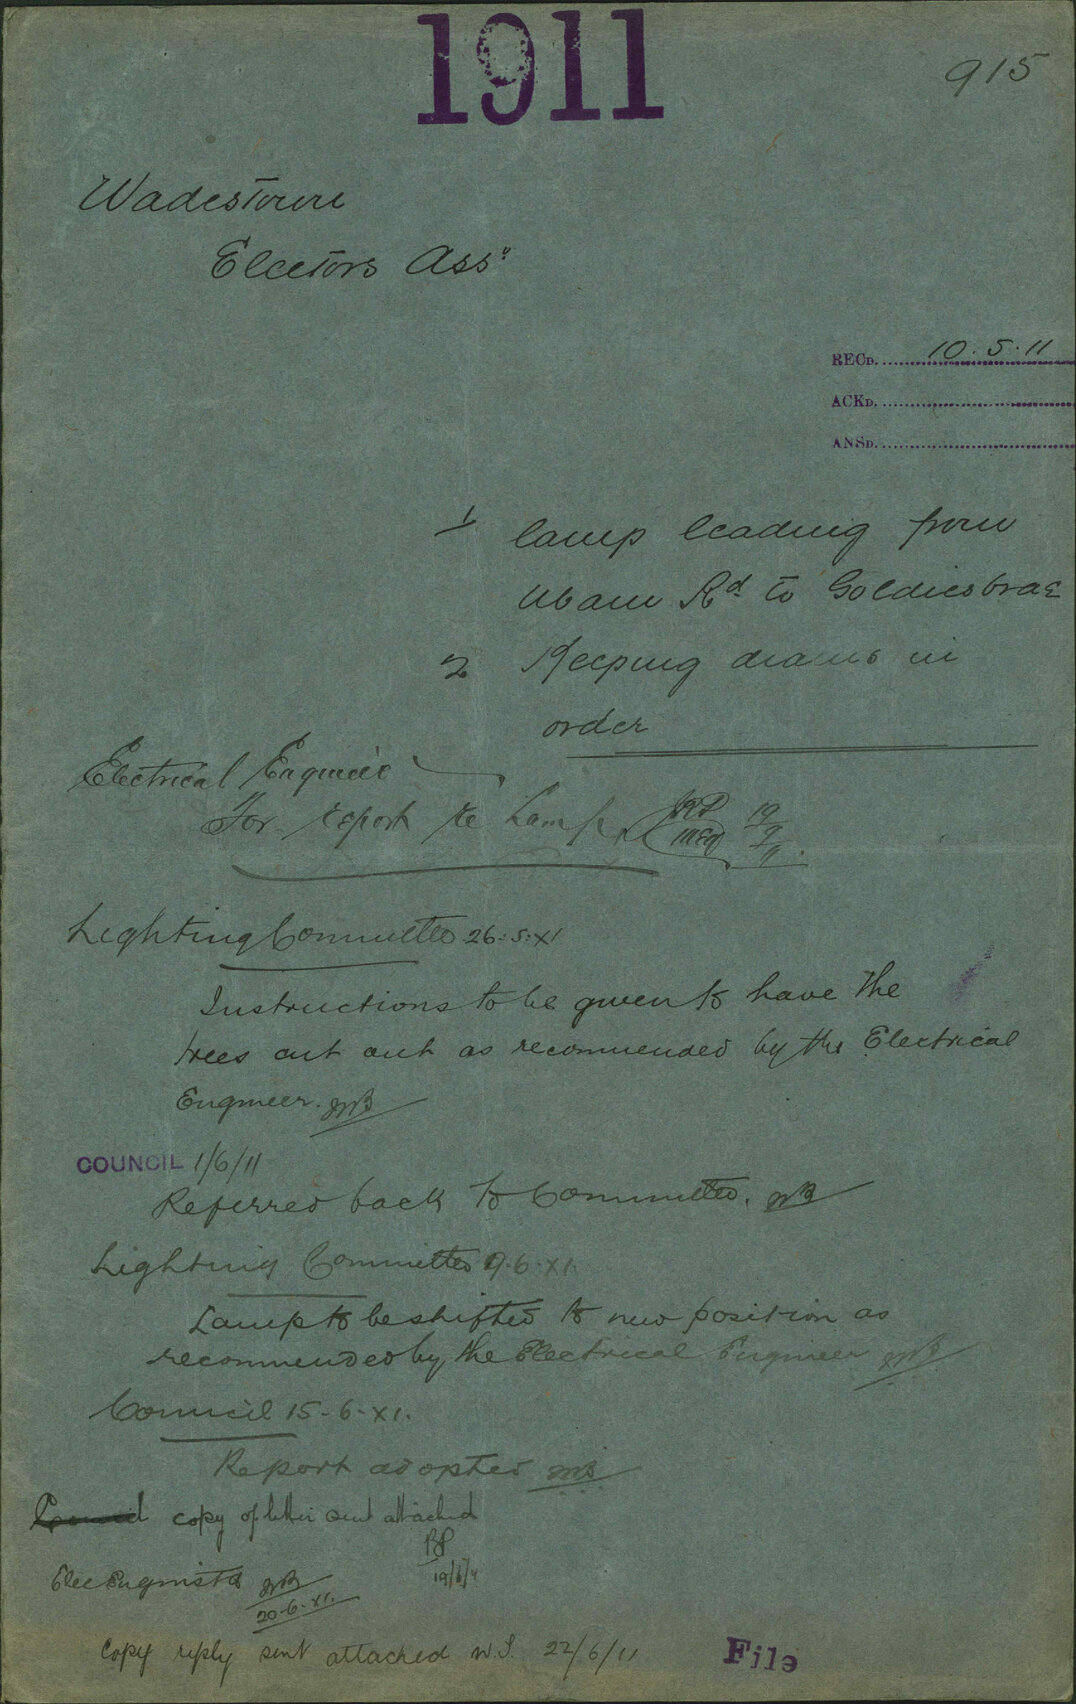 1911
915
Wadestown
Electors Assn
RECD. 10.5.11
ACKD.
ANSD.
1 lamp leading from
Wbank Rd to Goldiesbrae
2 Keeping drains in
order
Electrical Engineer
For report re Lamp.
Lighting Committee 26:5:XI
Instructions to be given to have the
trees cut out as recommended by the Electrical
Engineer.
COUNCIL 1/6/11
Referred back to Committee.
Lighting Committee 9.6.XI
Lamp to be shifted to new position as
recommended by the Electrical Engineer
Council 15-6-XI.
Report adopted
copy of letter sent attached
RP
19/6/11
Elec Engineer
20-6-XI.
Copy reply sent attached W.S. 22/6/11
File